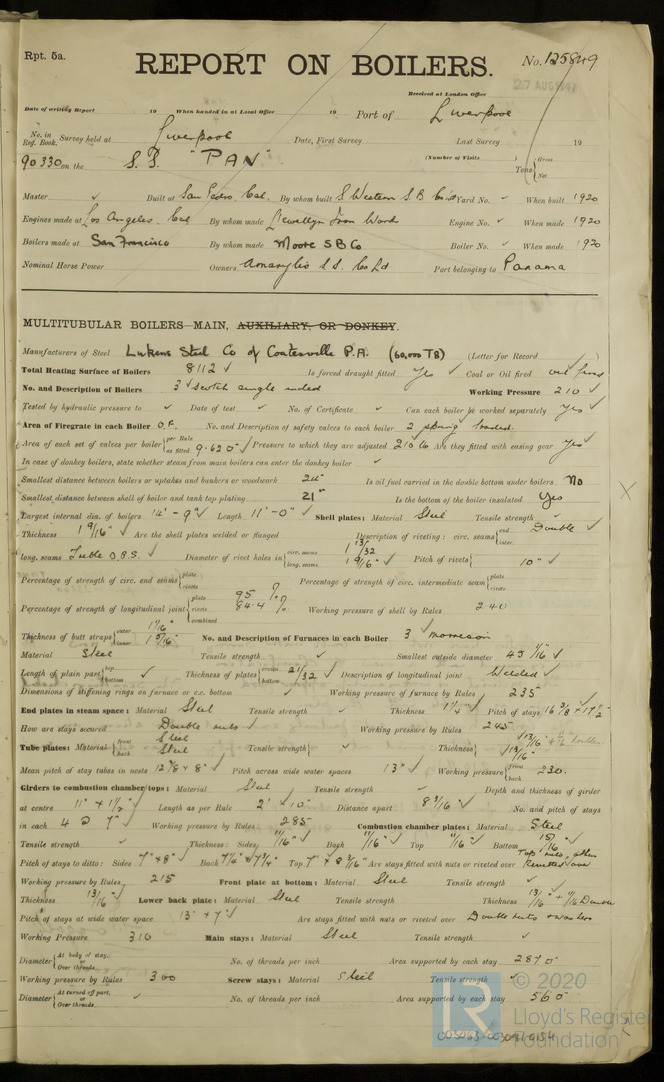 Rpt. 5a.
REPORT ON BOILERS.
No. 125849
Received at London Office
27 AUG 1947
Date of writing Report 19 When handed in at Local Office 19 Port of Liverpool
No. in Reg. Book. Survey held at Liverpool Date, First Survey Last Survey 19
(Number of Visits ) Gross
90330 on the S.S. "PAN" Tons Net
Master ✓ Built at San Pedro Cal. By whom built S Western S B Co Yard No. ✓ When built 1920
Engines made at Los Angeles. Cal By whom made Llewellyn Iron Engine No. ✓ When made 1920
Boilers made at San Francisco By whom made Moore S B Co Boiler No. ✓ When made 1920
Nominal Horse Power Owners S.S. Co Ld Port belonging to Panama
MULTITUBULAR BOILERS MAIN, AUXILIARY, OR DONKEY.
Manufacturers of Steel Lukens Steel Co of Coatesville P.A. (60,000 TB) (Letter for Record )
Total Heating Surface of Boilers 8112 ✓ Is forced draught fitted Yes ✓ Coal or Oil fired oil fired
No. and Description of Boilers 3 ✓ Scotch single ended Working Pressure 210 ✓
Tested by hydraulic pressure to ✓ Date of test ✓ No. of Certificate ✓ Can each boiler be worked separately Yes ✓
Area of Firegrate in each Boiler O.F. No. and Description of safety valves to each boiler 2 spring loaded.
Area of each set of valves per boiler per Rule as fitted 9.620 ✓ Pressure to which they are adjusted 210 lb Are they fitted with easing gear Yes ✓
In case of donkey boilers, state whether steam from main boilers can enter the donkey boiler ✓
Smallest distance between boilers or uptakes and bunkers or woodwork 24" Is oil fuel carried in the double bottom under boilers No
Smallest distance between shell of boiler and tank top plating 21" Is the bottom of the boiler insulated Yes
Largest internal dia. of boilers 14' - 9" ✓ Length 11' - 0" ✓ Shell plates: Material Steel Tensile strength ✓
Thickness 1 9/16" ✓ Are the shell plates welded or flanged Description of riveting: circ. seams end Double ✓ inter.
long. seams Treble D.B.S. ✓ Diameter of rivet holes in circ. seams 1 13/32 long. seams 1 9/16" ✓ Pitch of rivets 10" ✓
Percentage of strength of circ. end seams plate rivets Percentage of strength of circ. intermediate seam plate rivets
Percentage of strength of longitudinal joint plate 95 % rivets 84.4 % combined Working pressure of shell by Rules 240
Thickness of butt straps outer 1 1/16" inner 1 5/16" No. and Description of Furnaces in each Boiler 3 Morrison
Material Steel Tensile strength ✓ Smallest outside diameter 43 1/16" ✓
Length of plain part top bottom ✓ Thickness of plates crown bottom 21/32 ✓ Description of longitudinal joint Welded ✓
Dimensions of stiffening rings on furnace or c.c. bottom ✓ Working pressure of furnace by Rules 235
End plates in steam space: Material Steel Tensile strength ✓ Thickness 1 1/4" ✓ Pitch of stays 16 3/8 x 17 1/2"
How are stays secured Double nuts ✓ Working pressure by Rules 245
Tube plates: Material front Steel back Steel Tensile strength ✓ Thickness 13/16" 13/16"
Mean pitch of stay tubes in nests 12 7/8 x 8" ✓ Pitch across wide water spaces 13" ✓ Working pressure front back 230.
Girders to combustion chamber tops: Material Steel Tensile strength ✓ Depth and thickness of girder
at centre 11" x 1 1/2" Length as per Rule 2' x 10" Distance apart 8 3/16" ✓ No. and pitch of stays
in each 4 @ 7" ✓ Working pressure by Rules 285 Combustion chamber plates: Material Steel
Tensile strength ✓ Thickness: Sides 11/16" ✓ Back 11/16" ✓ Top 11/16" ✓ Bottom 15/16 ✓
Pitch of stays to ditto: Sides 7" x 8" ✓ Back 7 1/16" x 7 3/4" Top 7" x 8 3/16" Are stays fitted with nuts or riveted over Top nuts, others Riveted over
Working pressure by Rules 215 Front plate at bottom: Material Steel Tensile strength ✓
Thickness 13/16" ✓ Lower back plate: Material Steel Tensile strength Thickness 13/16 + 11/16 Double
Pitch of stays at wide water space 13" x 7" ✓ Are stays fitted with nuts or riveted over Double nuts & washers
Working Pressure 310 Main stays: Material Steel Tensile strength ✓
Diameter At body of stay, or Over threads. No. of threads per inch Area supported by each stay 2870
Working pressure by Rules 300 Screw stays: Material Steel Tensile strength ✓
Diameter At turned off part, or Over threads. ✓ No. of threads per inch Area supported by each stay 560
© 2020
LR
Lloyd's Register
Foundation